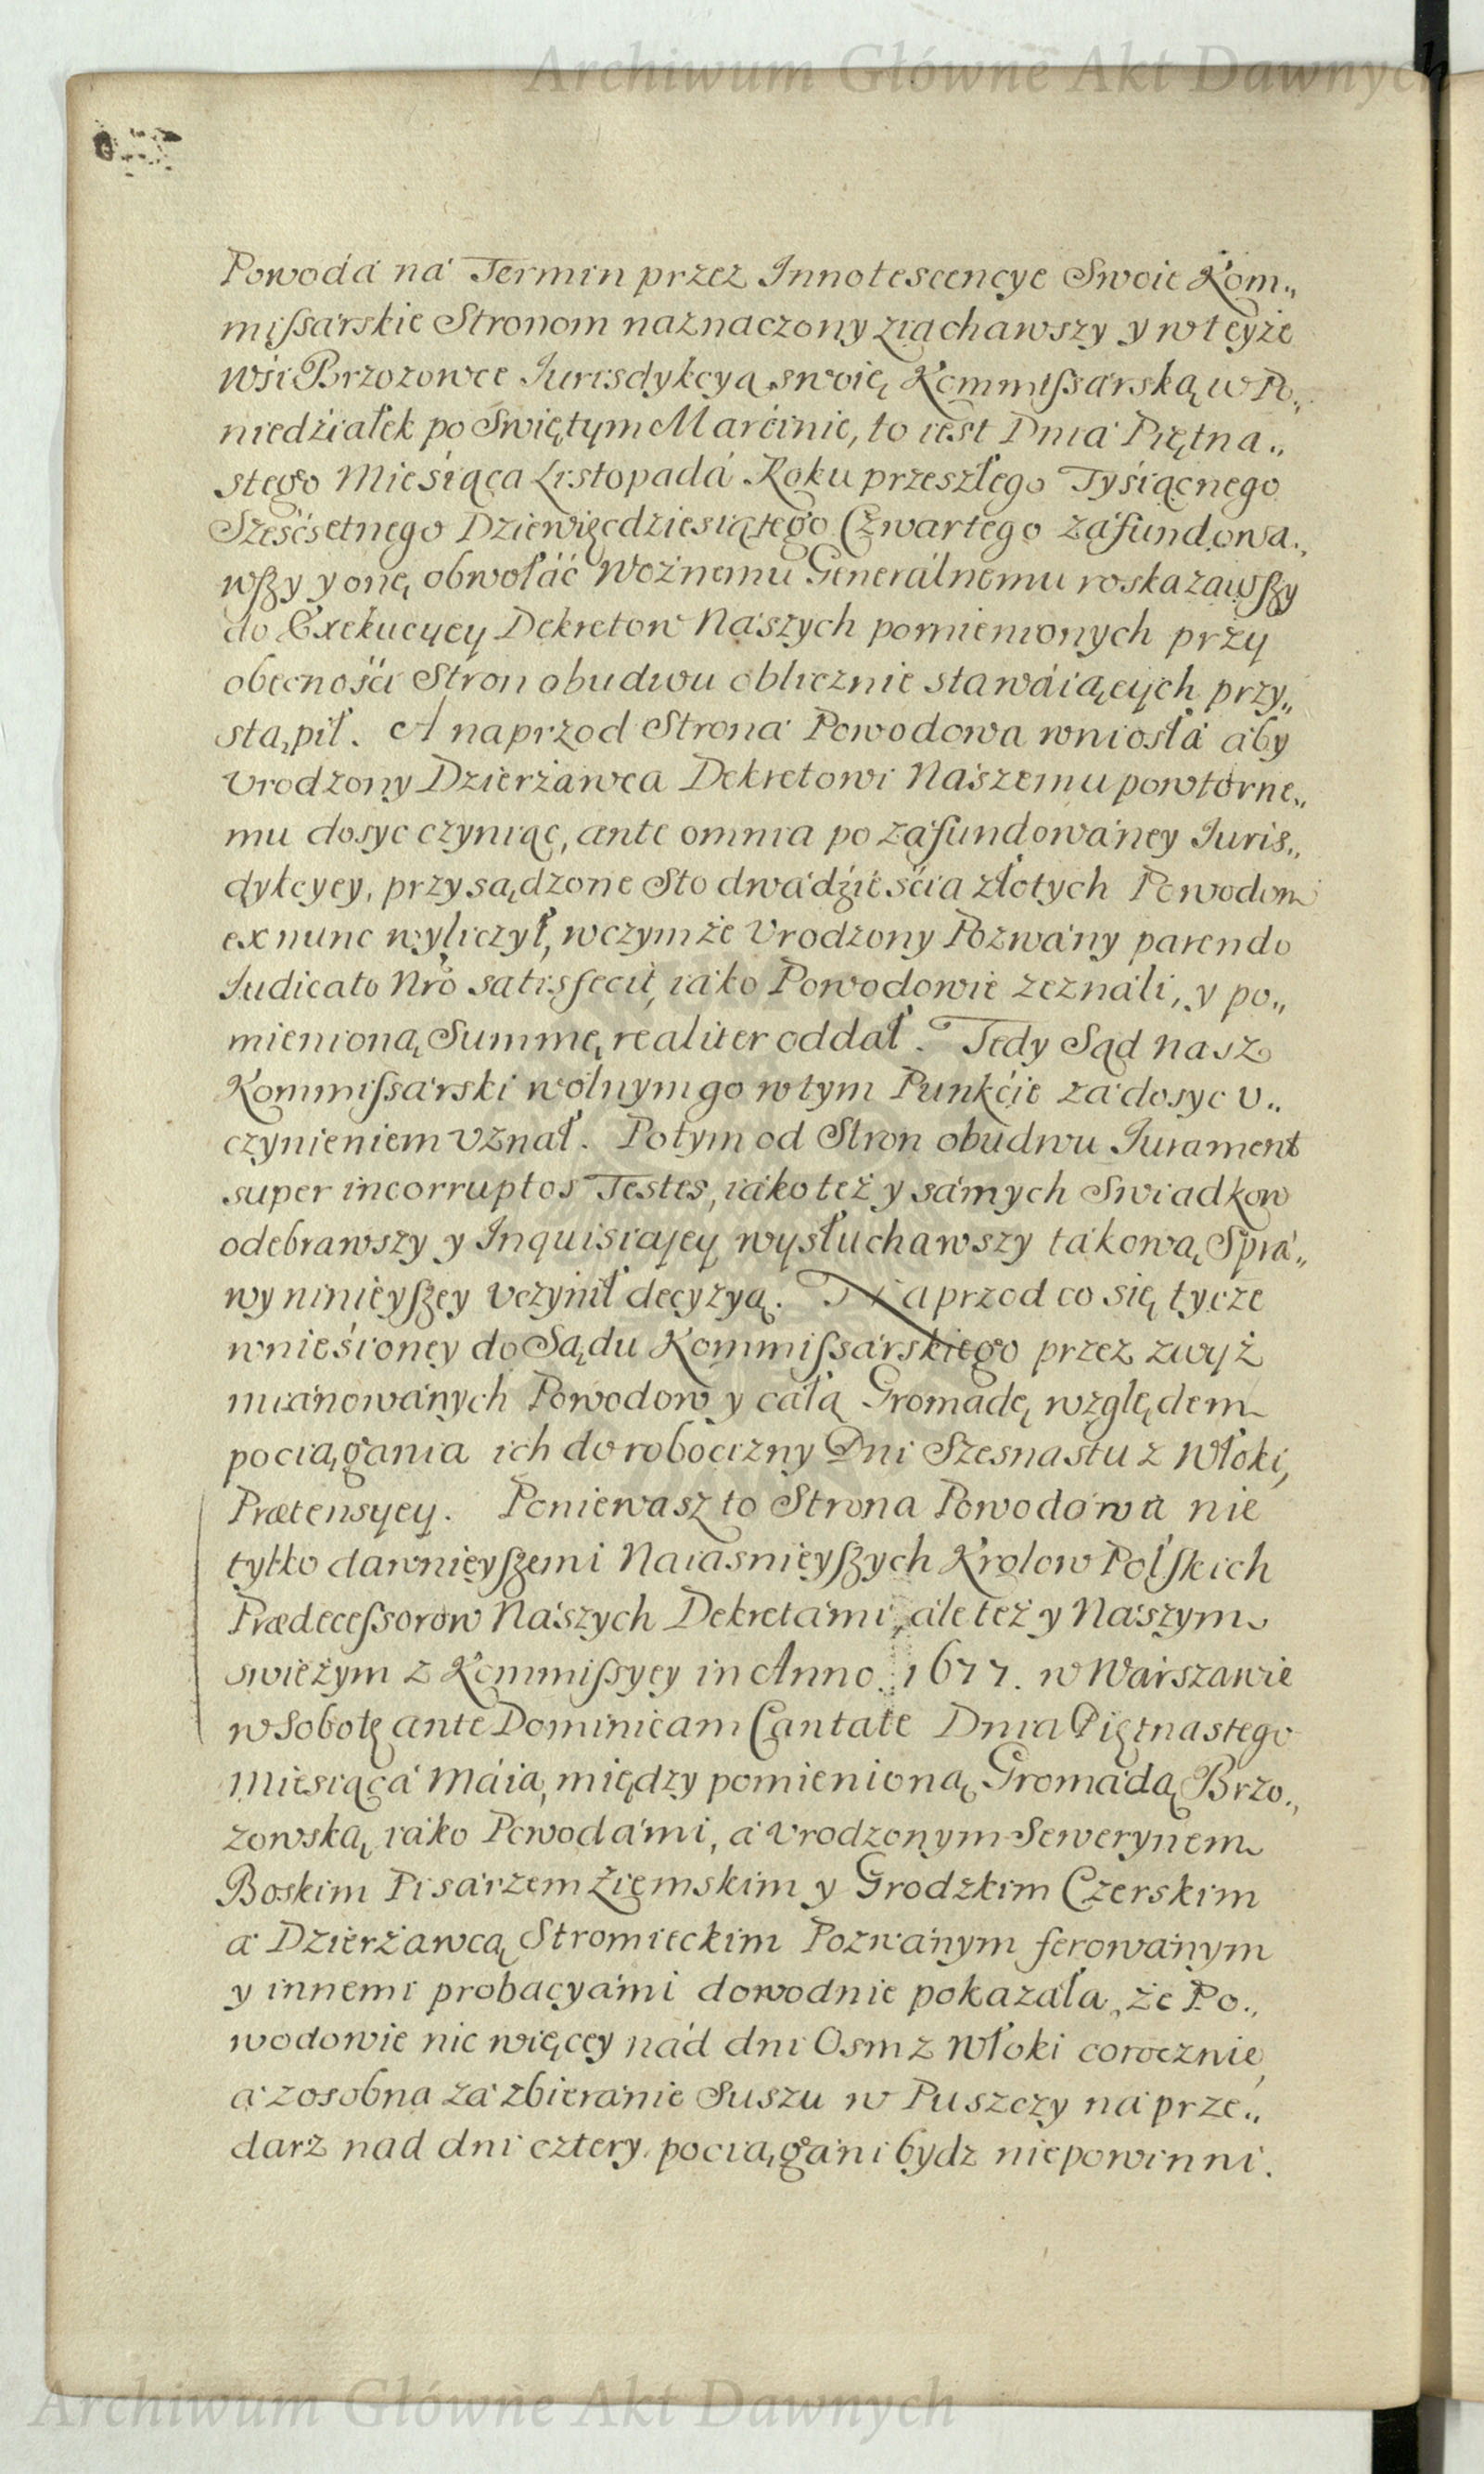 Archiwum Główne Akt Dawnych
Powodá ná Termin przez Innotescencye Swoie Kom„
miſsárskie Stronom náznaczony ziachawszy y w teyże
wśi Brzozowce Iurisdykcyą swoię Kommiſsárską w Po„
niedźiałek po Swiętym Marćinie, to iest Dniá Piętna„
stego Mieśiąca Listopadá Roku przeszłego Tyśiącnego
Sześćsetnego Dziewięcdziesiątego Czwartego záfundowa„
wſzy y onę obwołáć Woźnemu Generálnemu roskazawſzy
do Exekucyey Dekretow Nászych pomienionych przy
obecnośći Stron obudwu oblicznie stawáiących przy„
stąpił. A naprzod Stroná Powodowa wniosłá áby
Vrodzony Dzierżawca Dekretowi Nászemu powtorne„
mu dosyc czyniąc, ante omnia po záfundowáney Iuris„
dykcyey, przysądzone Sto dwádźieśćia złotych Powodom
ex nunc wyliczył, w czym że Vrodzony Pozwány parendo
Iudicato Nrõ satisfecit, iáko Powodowie zeználi, y po„
mienioną Summę realiter oddał. Tedy Sąd nasz
Kommiſsárski wolnym go w tym Punkćie zá dosyc v„
czynieniem vznał. Potym od Stron obudwu Iurament
super incorruptos Testes, iáko też y sámych Swiadkow
odebrawszy y Inquisicyey wysłuchawszy tákową Sprá„
wy ninieyſzey vczynił decyzyą. Naprzod co się tycze
wnieśioney do Sądu Kommiſsárskiego przez zwyż
miánowánych Powodow y całą Gromádę względem
pociągania ich do robocizny Dni Szesnastu z Włoki,
Prætensyey. Poniewasz to Strona Powodowa nie
tylko dawnieyſzemi Naiásnieyſzych Krolow Polſkich
Prædeceſsorow Nászych Dekretámi, ále też y Nászym
swieżym z Kommiſsyey in Anno 1677. w Warszawie
w Sobotę ante Dominicam Cantate Dnia Piętnastego
Miesiącá Máia, między pomienioną Gromádą Brzo„
zowską iáko Powodámi, á Vrodzonym Sewerynem
Boskim Pisárzem Ziemskim y Grodzkim Czerskim
á Dzierżawcą Stromieckim Pozwánym ferowánym
y innemi probacyámi dowodnie pokazáła, że Po„
wodowie nic więcey nád dni Osm z Włoki corocznie,
á zosobna zá zbieránie Suszu w Puszczy ná prze„
darz nad dni cztery pociągáni bydz niepowinni.
Archiwum Główne Akt Dawnych